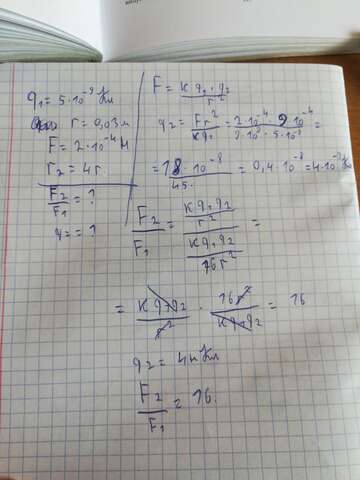 q₁ = 5·10⁻⁹ Кл
r = 0,03м
F = 2·10⁻⁴ Н
r₂ = 4r
F₂/F₁ = ?
q₂ = ?
F = K q₁·q₂ / r²
q₂ = Fr²/Kq₁ = 2·10⁻⁴·9·10⁻⁴ / 9·10⁹·5·10⁻⁹ =
= 18·10⁻⁸/45 = 0,4·10⁻⁸ = 4·10⁻⁹ Кл
F₂/F₁ = (K q₁·q₂ / r²) / (K q₁·q₂ / 16r²) =
= K q₁·q₂ / r² · 16r² / K q₁·q₂ = 16
q₂ = 4нКл
F₂/F₁ = 16.